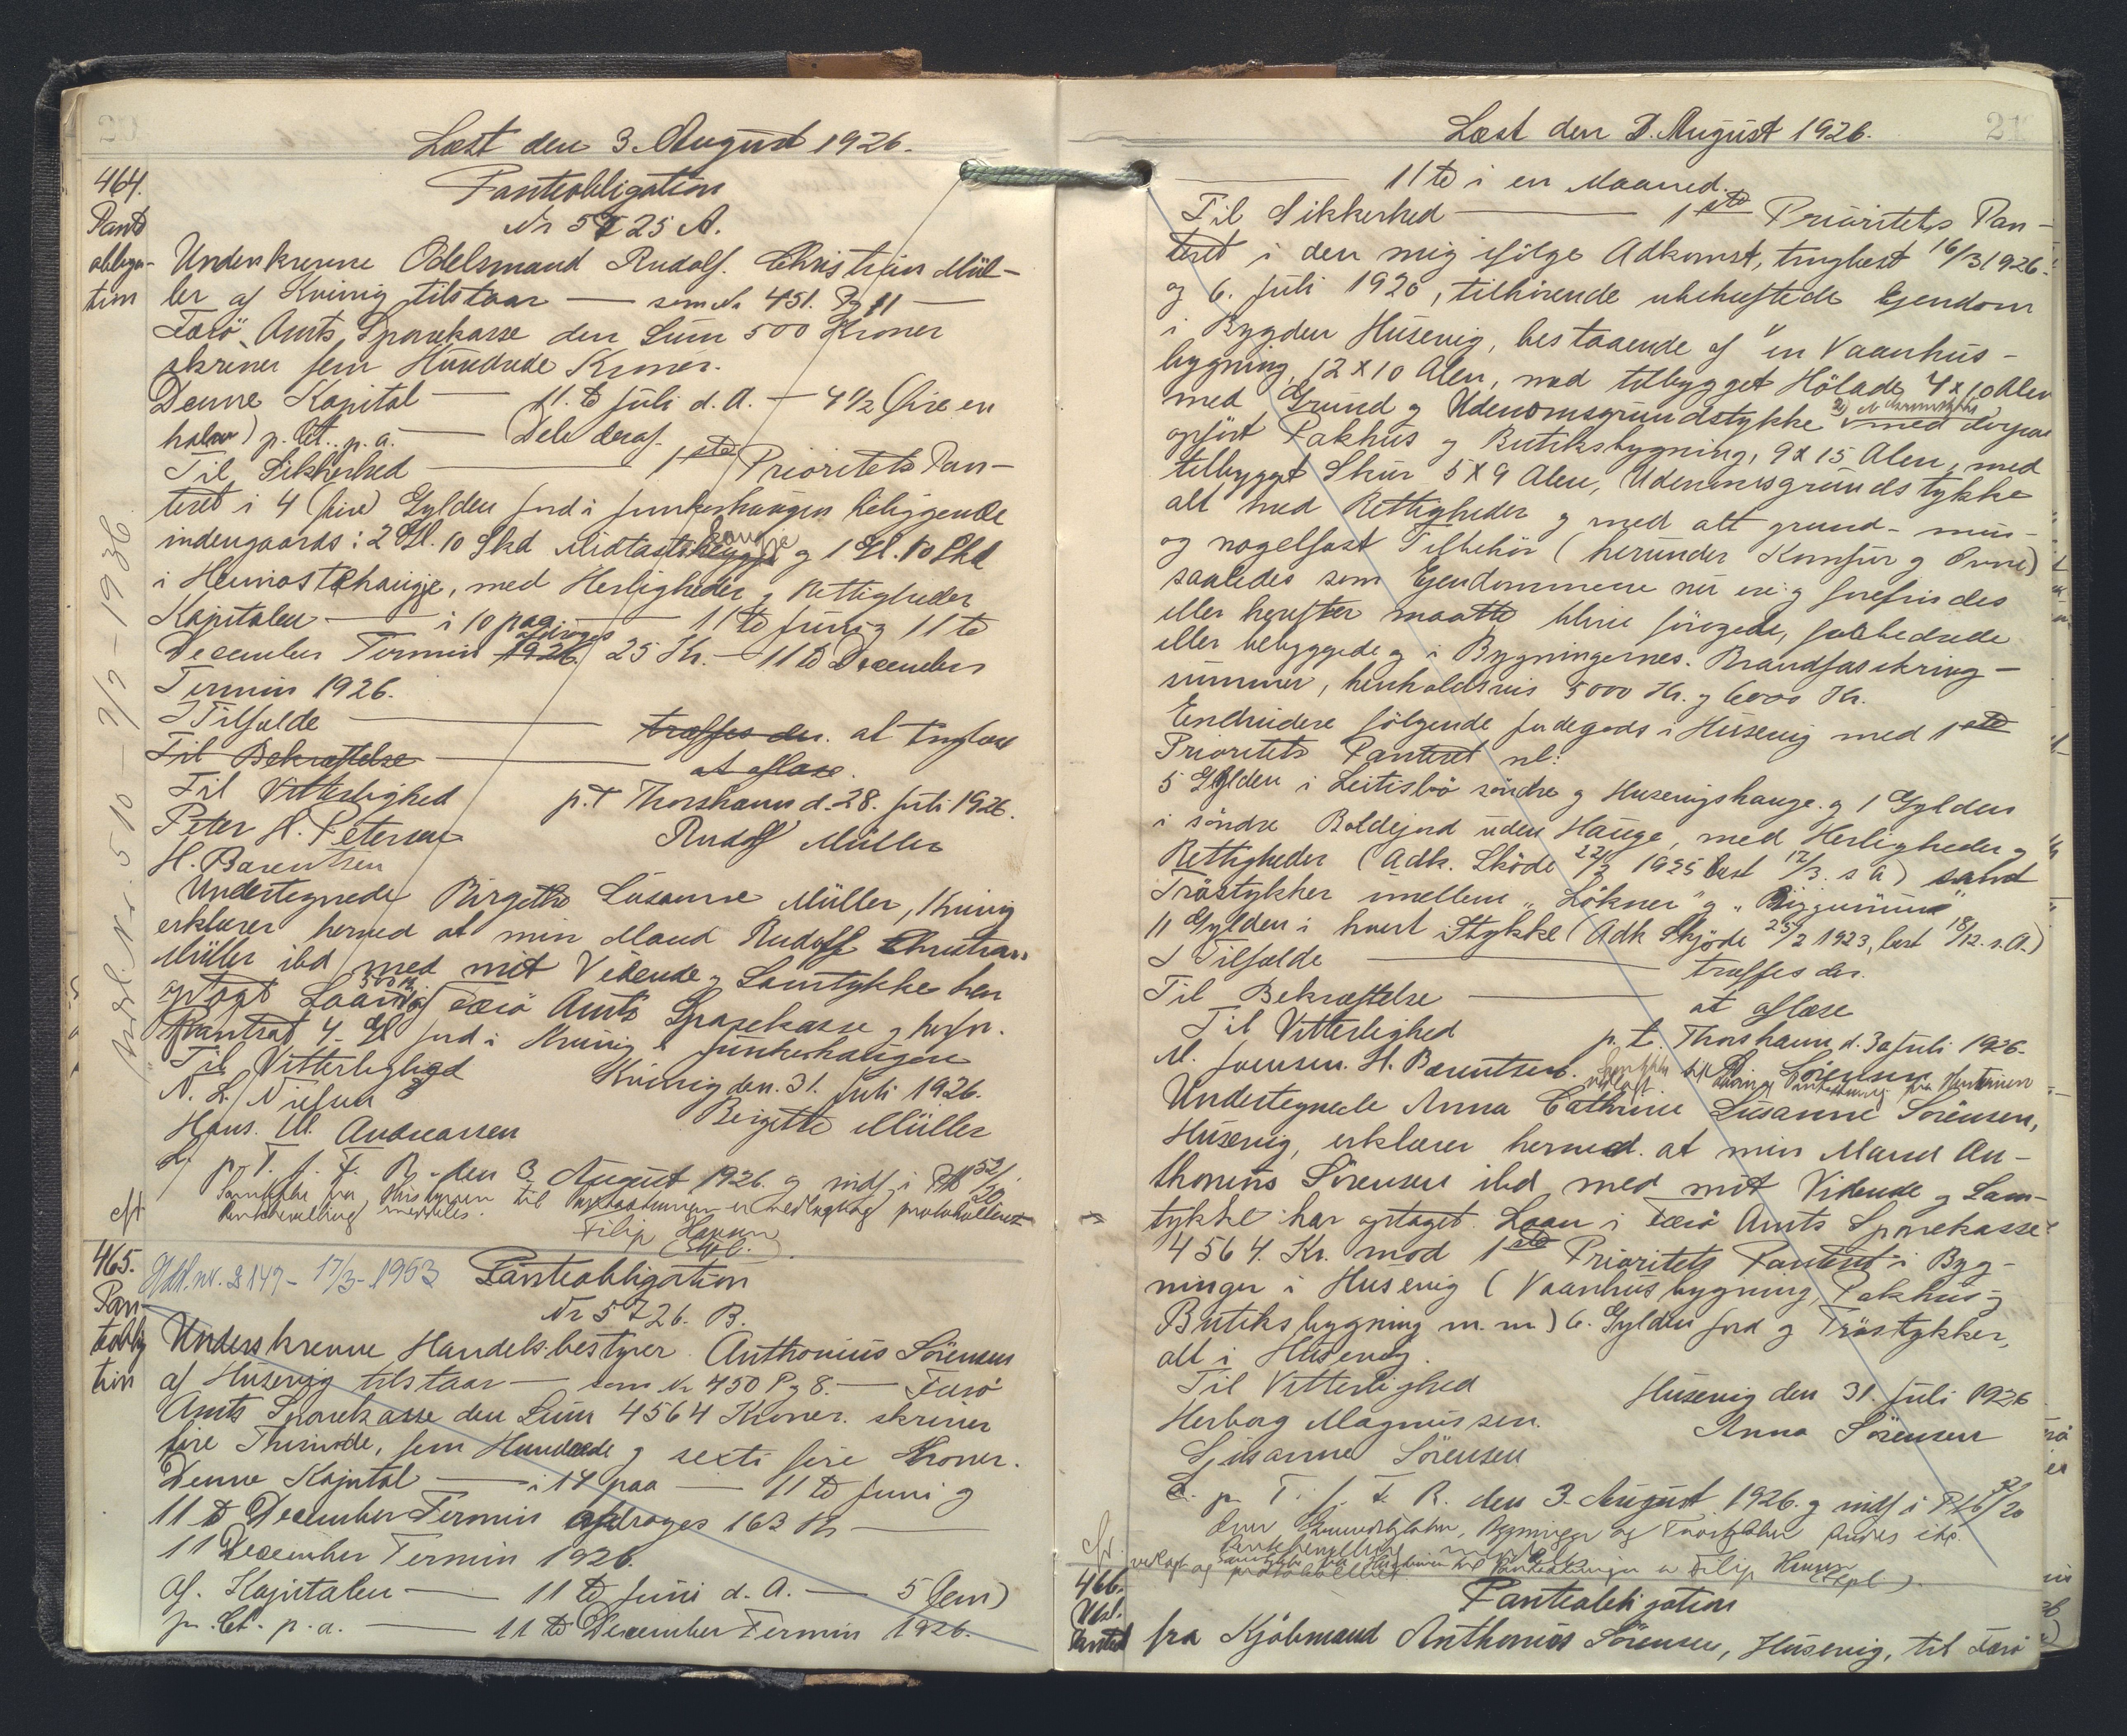 Læst den 3. August 1926.
464.
Pant
obliga-
tion
Panteobligation
Nr 5725 A.
Underskrevne Odelsmand Rudolf Christian Mül-
ler af Kvivig tilstaar — som Nr 451. Pg 11 —
Færö Amts Sparekasse den Sum 500 Kroner
skriver fem Hundrede Kroner.
Denne Kapital — 11. te Juli d. A. — 4 1/2 (fire en
halv) p. Ct. p. a. — Dele deraf.
Til Sikkerhed — 1ste Prioritets Pan-
teret i 4 (fire) Gylden Jord i Junkerhaugen beliggende
indengaards: 2 Gl. 10 Skd Midtasthauge og 1 Gl. 10 Skd
i Heimastehauge, med Herligheder og Rettigheder
Kapitalen — i 10 paa — 11 te Juni og 11 te
December Termin 1926 afdrages 25 Kr. — 11 te December
Termin 1926.
I Tilfælde — træffes der. at tinglæse
Til Bekræftelse — at aflæse.
Til Vitterlighed p.t Thorshavn d. 28. Juli 1926.
Peter H. Petersen Rudolf Müller
H. Barentsen
Undertegnede Birgithe Susanne Müller, Kvivig
erklærer herved at min Mand Rudolf Christian
Müller ibd med mit Vidende og Samtykke har
optaget Laan 500 Kr. af Færö Amts Sparekasse og herfor
pantsat 4 Gl Jord i Kvivig Junkerhaugen
Til Vitterlighed Kvivig den. 31. Juli 1926.
N. L. Nielsen Birgitte Müller
Hans. M. Andreassen
L. p. T. f. F. R. den 3 August 1926. og indf. i Ptb 52/20
Samtykke fra Hustruen til Pantsætningen er vedlagt og protokolleret
Filip Hansen
(Spl.)
cfr
Udsl. Nr. 510 - 7/5 - 1936
465.
Pan-
teoblig
tion
Udsl. nr. 2147 - 17/3 - 1953
Panteobligation
Nr 5726. B.
Underskrevne Handelsbestyrer Anthonius Sörensen
af Husevig tilstaar — som Nr 450 Pg 8. — Færö
Amts Sparekasse den Sum 4564 Kroner. skriver
fire Thusinde, fem Hundrede og sexti fire Kroner.
Denne Kapital — i 14 paa — 11 te Juni og
11 te December Termin afdrages 163 Kr —
11 December Termin 1926.
af. Kapitalen — 11 te Juni d. A. — 5 (fem)
pr. Ct. p. a. — 11 te December Termin 1926.
Læst den 3. August 1926.
— 11 te i en Maaned.
Til Sikkerhed — 1ste Prioritets Pan-
teret i den mig ifölge Adkomst, tinglæst 16/3 1926
og 6. Juli 1920, tilhörende ubehæftede Ejendom
i Bygden Husevig, bestaaende af en Vaanhus-
bygning, 12 x 10 Alen, med tilbygget Hölade 4 x 10 Alen
med Grund og Udenomsgrundstykke med derpaa
opfört Pakhus og Butiksbygning, 9 x 15 Alen, med
tilbygget Skur 5 x 9 Alen, Udenomsgrundstykke
alt med Rettigheder og med alt grund- mur-
og nagelfast Tilbehör (herunder Komfur og Ovne)
saaledes som Ejendommene nu ere og forefindes
eller herefter maatte blive forögede, forbedrede
eller bebyggede og i Bygningernes. Brandforsikring-
summer, henholdsvis 5000 Kr. og 6000 Kr.
Endvidere fölgende Jordegods i Husevig med 1ste
Prioritets Panteret nl:
5 Gylden i Leitisbö söndre og Husevigshauge. og 1 Gylden
i söndre Boldejord uden Hauge, med Herligheder og
Rettigheder (Adk. Sköde 22/2 1925 læst 12/3. s A) samt
Tröstykker imellem "Lökner" og
11 Gylden i hvert Stykke (Adk Skjöde 25/2 1923, læst 18/12. s. A.)
I Tilfælde — træffes der.
Til Bekræftelse — at aflæse
Til Vitterlighed p. t. Thorshavn d. 30 Juli 1926.
M. Joensen. H. Barentsen. A. Sörensen
Undertegnede Anna Cathrine Susanne Sörensen,
Husevig, erklærer herved. at min Mand An-
thonius Sörensen ibd med mit Vidende og Sam-
tykke har optaget Laan i Færö Amts Sparekasse
4564. Kr. mod 1ste Prioritets Panteret i Byg-
ninger i Husevig (Vaanhusbygning, Pakhus og
Butiksbygning m. m) 6. Gylden Jord og Tröstykker,
alt i Husevig.
Til Vitterlighed Husevig den 31. Juli 1926
Herborg Magnussen. Anna Sörensen
Susanne Sörensen
L. p. T. f. F. R. den 3. August 1926. og indf i Ptb /20
cfr.
Filip Hansen
(Spl)
466.
Udsl.
Panteobligation
fra Kjöbmand Anthonius Sörensen, Husevig, til Færö